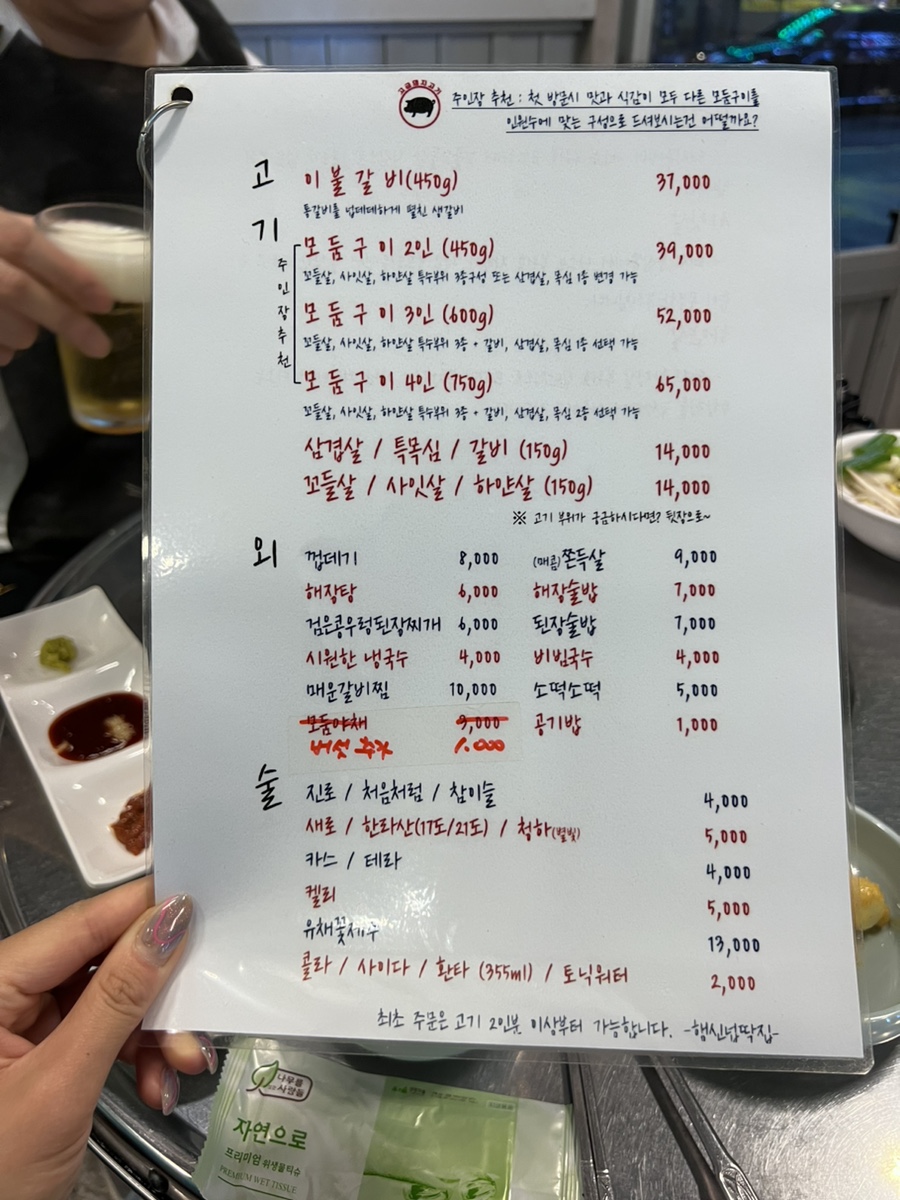 고급돼지고기
주인장 추천 : 첫 방문시 맛과 식감이 모두 다른 모둠구이를
인원수에 맞는 구성으로 드셔보시는건 어떨까요?
고기
이불갈비(450g) 37,000
통갈비를 넙데데하게 펼친 생갈비
주인장추천
모둠구이 2인 (450g) 39,000
꼬들살, 사잇살, 하얀살 특수부위 3종구성 또는 삼겹살, 목심 1종 변경 가능
모둠구이 3인 (600g) 52,000
꼬들살, 사잇살, 하얀살 특수부위 3종 + 갈비, 삼겹살, 목심 1종 선택 가능
모둠구이 4인 (750g) 65,000
꼬들살, 사잇살, 하얀살 특수부위 3종 + 갈비, 삼겹살, 목심 2종 선택 가능
삼겹살 / 특목심 / 갈비 (150g) 14,000
꼬들살 / 사잇살 / 하얀살 (150g) 14,000
※ 고기 부위가 궁금하시다면? 뒷장으로~
외
껍데기 8,000 (매콤)쫀득살 9,000
해장탕 6,000 해장술밥 7,000
검은콩우렁된장찌개 6,000 된장술밥 7,000
시원한 냉국수 4,000 비빔국수 4,000
매운갈비찜 10,000 소떡소떡 5,000
모둠야채 3,000 공기밥 1,000
버섯 추가 1.000
술
진로 / 처음처럼 / 참이슬 4,000
새로 / 한라산(17도/21도) / 청하(별빛) 5,000
카스 / 테라 4,000
켈리 5,000
유채꽃제주 13,000
콜라 / 사이다 / 환타 (355ml) / 토닉워터 2,000
최초 주문은 고기 2인분 이상부터 가능합니다. -행신넙딱집-
나무를
사람들
자연으로
프리미엄 위생물티슈
PREMIUM WET TISSUE